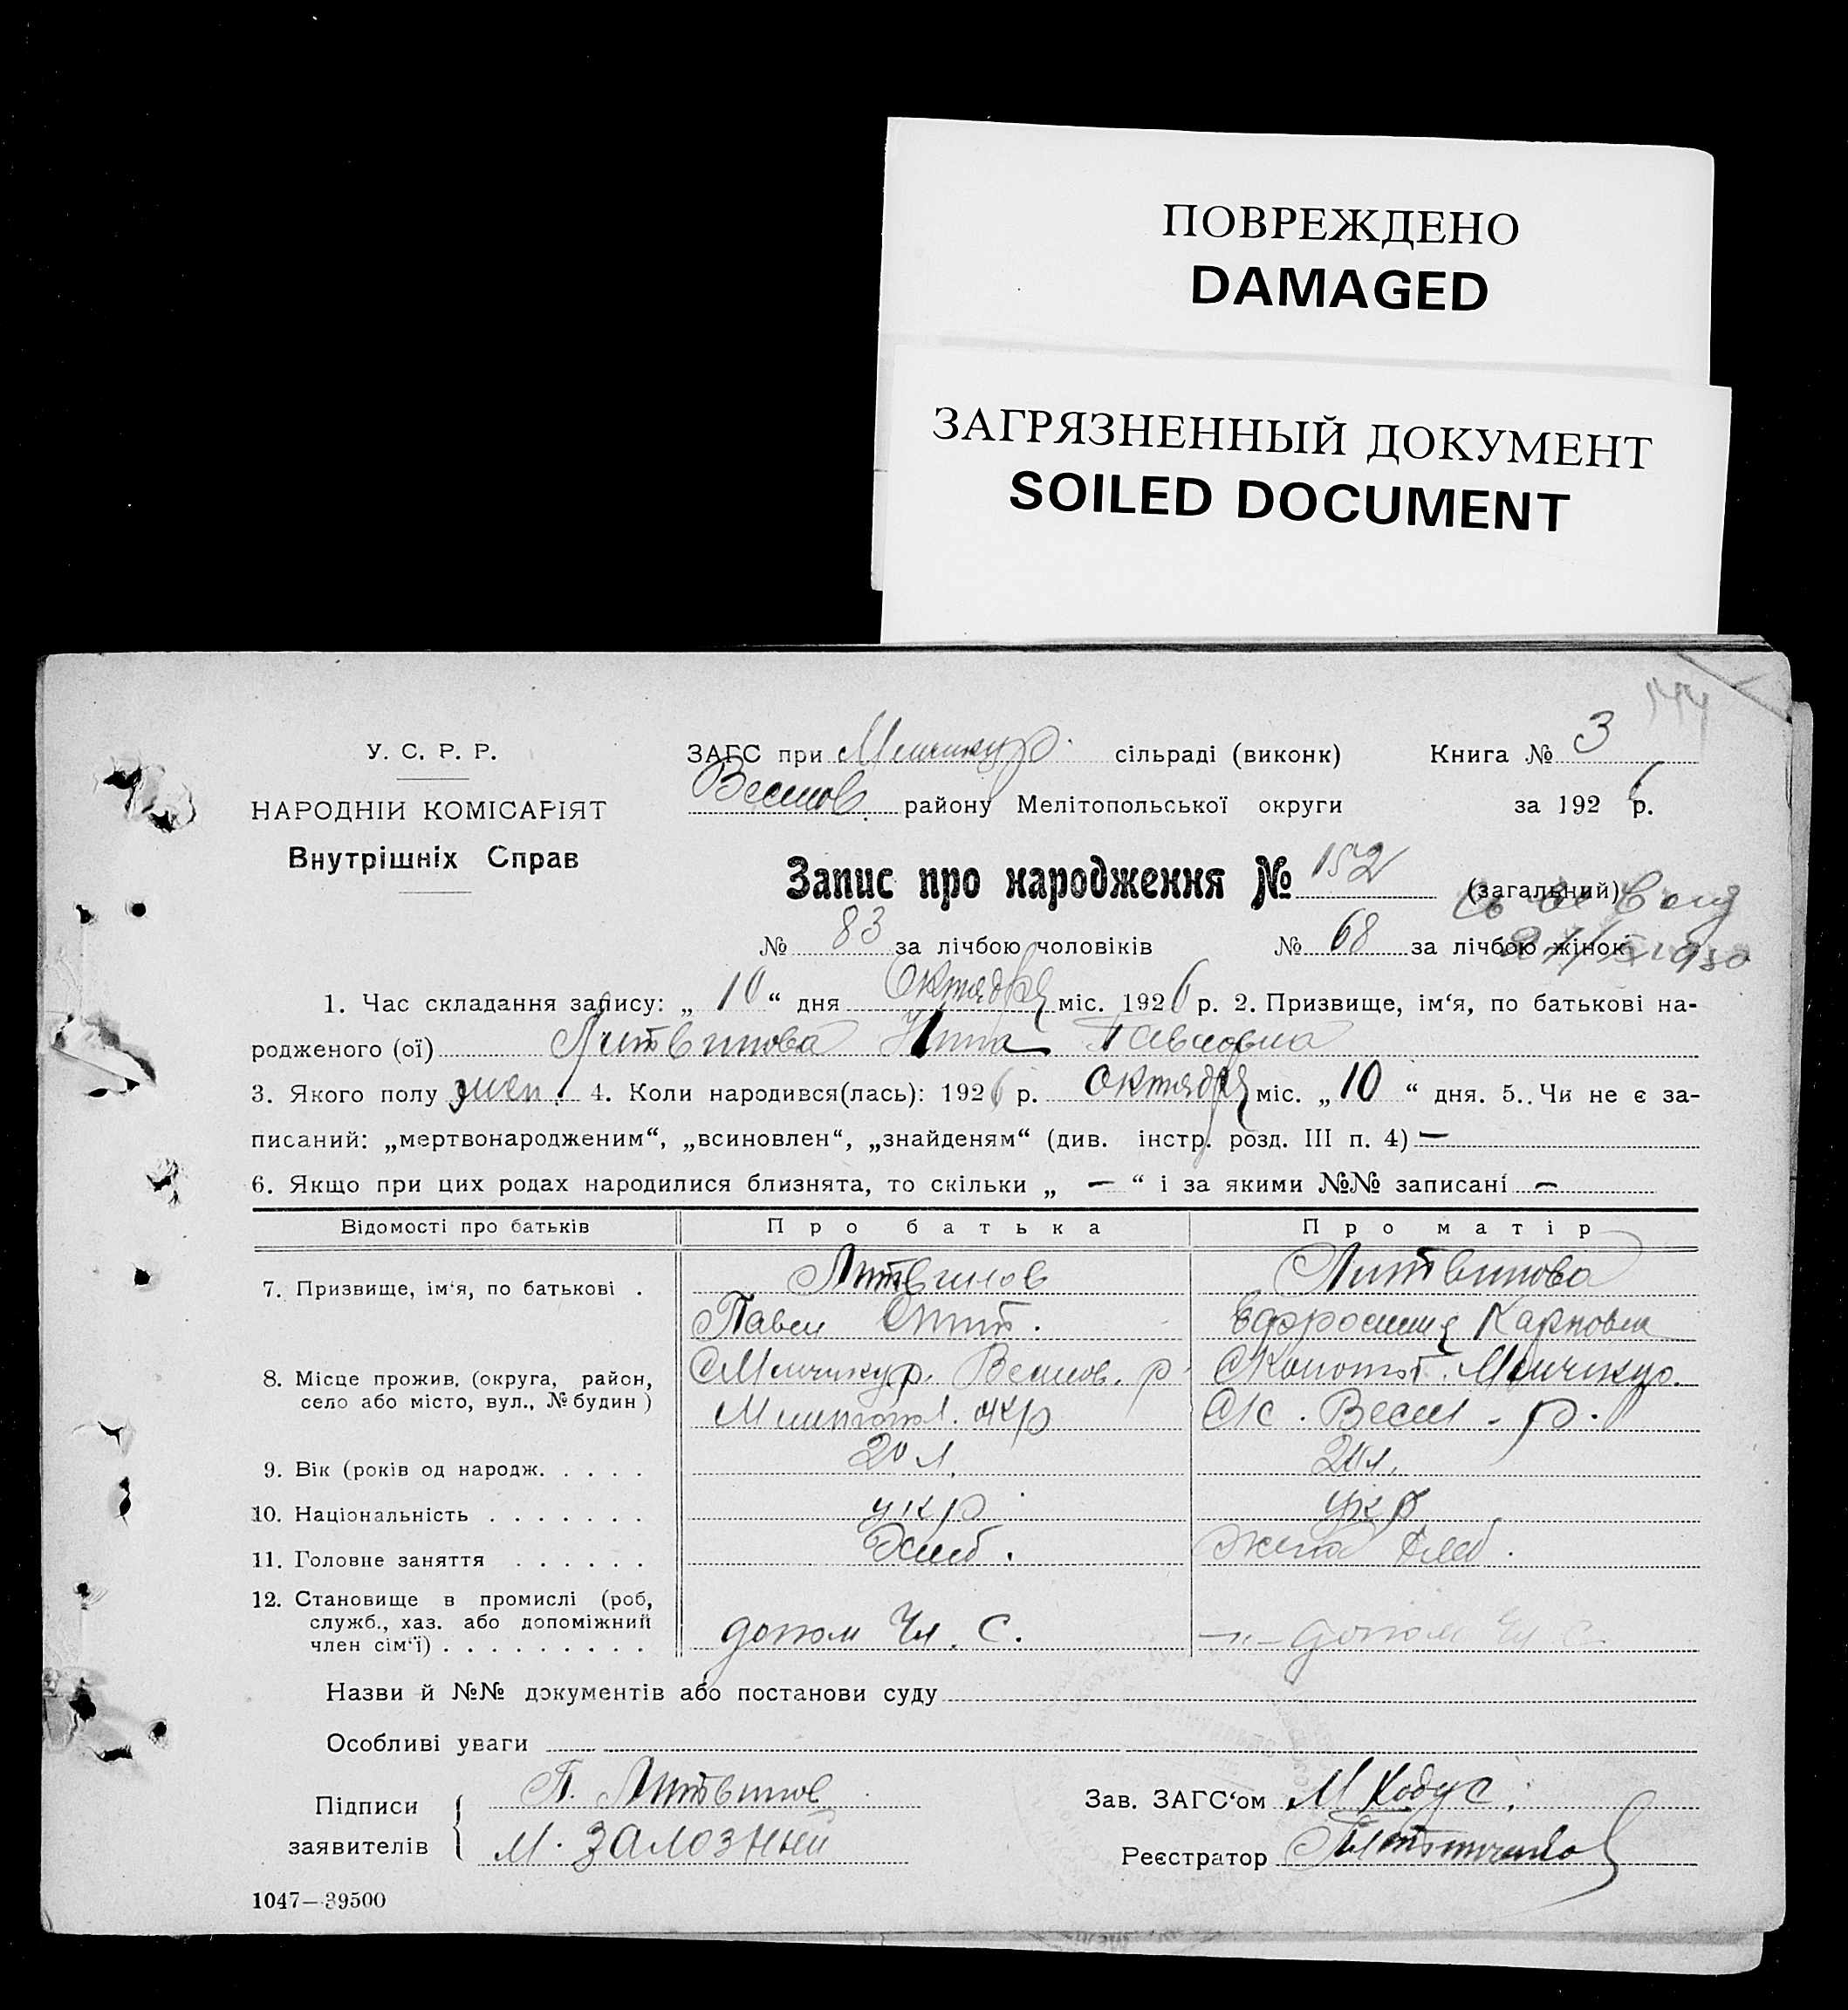 ПОВРЕЖДЕНО
DAMAGED
ЗАГРЯЗНЕННЫЙ ДОКУМЕНТ
SOILED DOCUMENT
У. С. Р. Р. ЗАГС при Менчикур. сільраді (виконк) Книга № 3
Весенов. району Мелітопольської округи за 1926 р.
НАРОДНІЙ КОМІСАРІЯТ
Внутрішніх Справ
Запис про народження № 152 (загальний)
№ 83 за лічбою чоловіків № 68 за лічбою жінок
1. Час складання запису: „ 10 “ дня Октября міс. 1926 р. 2. Призвище, ім‘я, по батькові на-
родженого (ої) Литвинова Нина Павловна
3. Якого полу жен. 4. Коли народився(лась): 1926 р. Октября міс. „ 10 “ дня. 5.. Чи не є за-
писаний: „мертвонародженим“, „всиновлен“, „знайденям“ (див. інстр. розд. III п. 4) —
6. Якщо при цих родах народилися близнята, то скільки „ — “ і за якими №№ записані —
Відомості про батьків Про батька Про матір
7. Призвище, ім‘я, по батькові . Литвинов Литвинова
Павел Ефросиния Карповна
8. Місце прожив. (округа, район, Менчикур. Весенов. р. Менчикур.
село або місто, вул., № будин ) Мелитопол. окр С/С. Весел. р.
9. Вік (років од народж. . . . . 20 л. 20 л.
10. Національність . . . . . . . укр укр
11. Головне заняття . . . . . . Хлеб. жена хлеб.
12. Становище в промислі (роб,
служб., хаз. або допоміжний
член сім‘ї) . . . . . . . . . допом Чл. С. —„— допом Чл С.
Назви й №№ документів або постанови суду
Особливі уваги
Підписи П. Литвинов Зав. ЗАГС‘ом М Кодус
заявителів М. Залозный Реєстратор
1047—39500